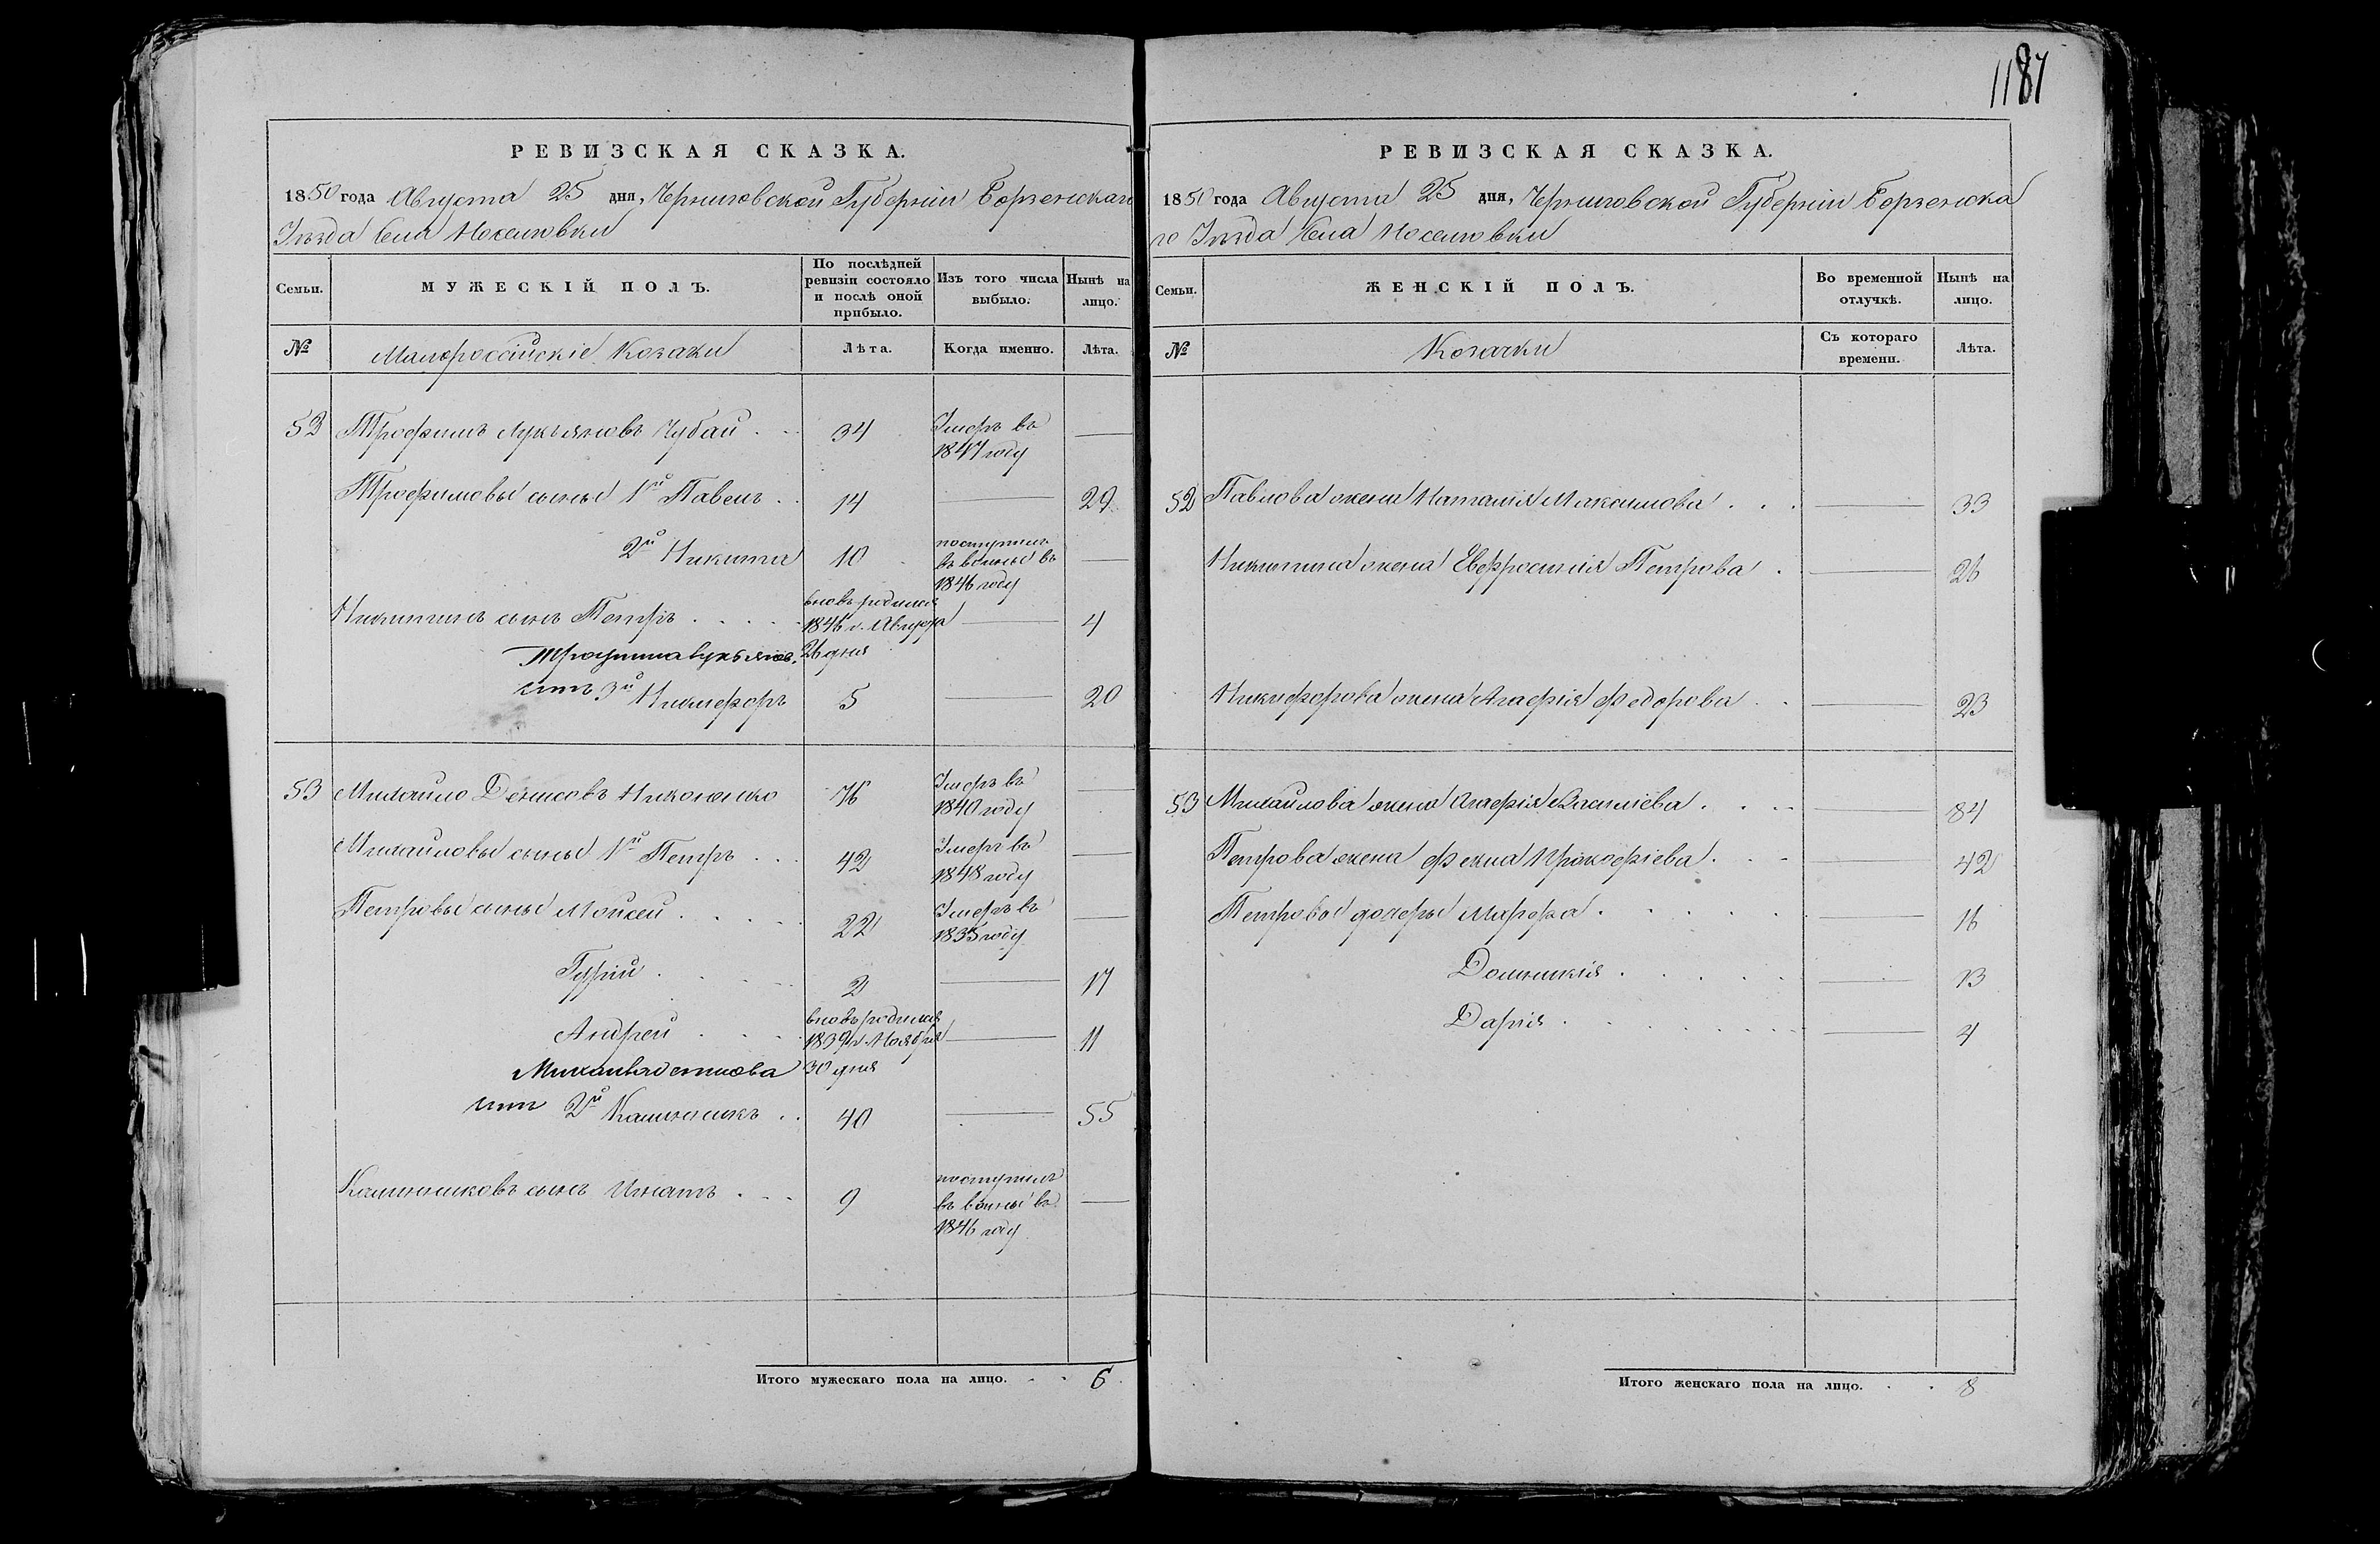 1187
РЕВИЗСКАЯ СКАЗКА.
1850 года Августа 25 дня, Черниговской Губерніи Борзенскаго
Уѣзда Села Носеловки
Семьи.
МУЖЕСКІЙ ПОЛЪ.
По послѣдней ревизіи состояло и послѣ оной прибыло.
Изъ того числа выбыло.
Нынѣ на лицо.
№
Малороссійскіе Козаки
Лѣта.
Когда именно.
Лѣта.
52 Трофимъ Лукьяновъ Чубай 34 Умеръ въ 1847 году —
Трофимовы сыны 1й Павелъ 14 — 29
2й Никита 10 поступилъ въ воины въ 1846 году —
Никитинъ сынъ Петръ вновь родился 1846 г. Августа 26 дня — 4
Трофима Лукьянов.
сынъ 3й Никифоръ 5 — 20
53 Михайло Денисовъ Никоненко 76 Умеръ въ 1840 году —
Михайловы сыны 1й Петръ 42 Умеръ въ 1848 году —
Петровы сыны Мойсей 22 Умеръ въ 1835 году —
Гурій 2 — 17
Андрей вновь родился 1839 г. Ноября 30 дня — 11
Михайла Денисова
сынъ 2й Калинникъ 40 — 55
Калинниковъ сынъ Игнатъ 9 поступилъ въ воины въ 1846 году —
Итого мужескаго пола на лицо. 6
РЕВИЗСКАЯ СКАЗКА.
1850 года Августа 25 дня, Черниговской Губерніи Борзенска
го Уѣзда Села Носеловки
Семьи.
ЖЕНСКІЙ ПОЛЪ.
Во временной отлучкѣ.
Нынѣ на лицо.
№
Козачки
Съ котораго времени.
Лѣта.
52 Павлова жена Наталія Максимова — 33
Никитина жена Евфросинія Петрова — 26
Никифорова жена Агафія Федорова — 23
53 Михайлова жена Агафія Василіева — 84
Петрова жена Фекла Прокофіева — 42
Петровы дочеры Марфа — 16
Домникія — 13
Дарія — 4
Итого женскаго пола на лицо. 8